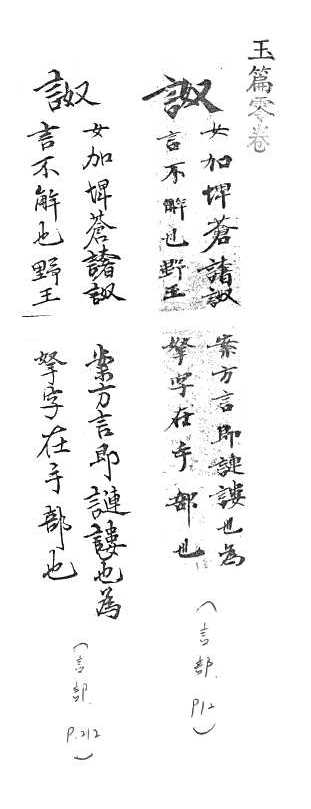 玉篇零卷
詉
女加埤蒼譇詉
言不解也野王
案方言即謰謱也為
拏字在手部也
(言部 P12)
詉
女加埤蒼譇詉
言不解也野王
案方言即謰謱也為
拏字在手部也
(言部 P.212)